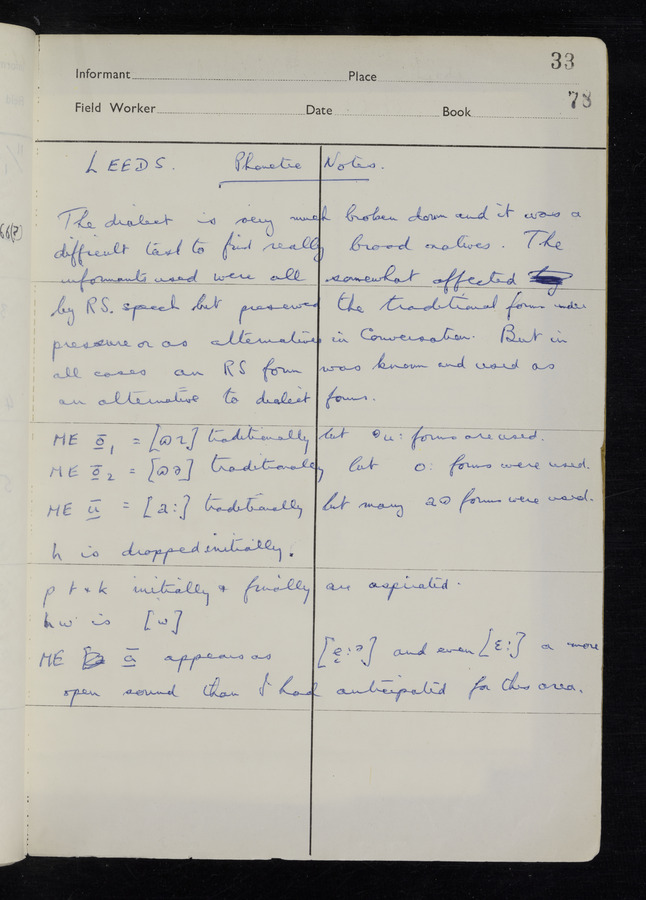 33
Informant Place
78
Field Worker Date Book
LEEDS. Phonetic Notes.
The dialect is very much broken down and it was a
difficult task to find really broad natives. The
informants used were all somewhat affected
by RS. speech but preserved the traditional forms under
pressure or as alternatives in Conversation. But in
all cases an RS form was known and used as
an alternative to dialect forms.
ME ō₁ = [ɷɪ] traditionally but əu: forms are used.
ME ō₂ = [ɷə] traditionally but o: forms were used.
ME ū = [a:] traditionally but many aɷ forms were used.
h is dropped initially.
p t + k initially & finally are aspirated.
hw is [w]
ME ā appears as [ę:ə] and even [ɛ:] a more
open sound than I had anticipated for this area.